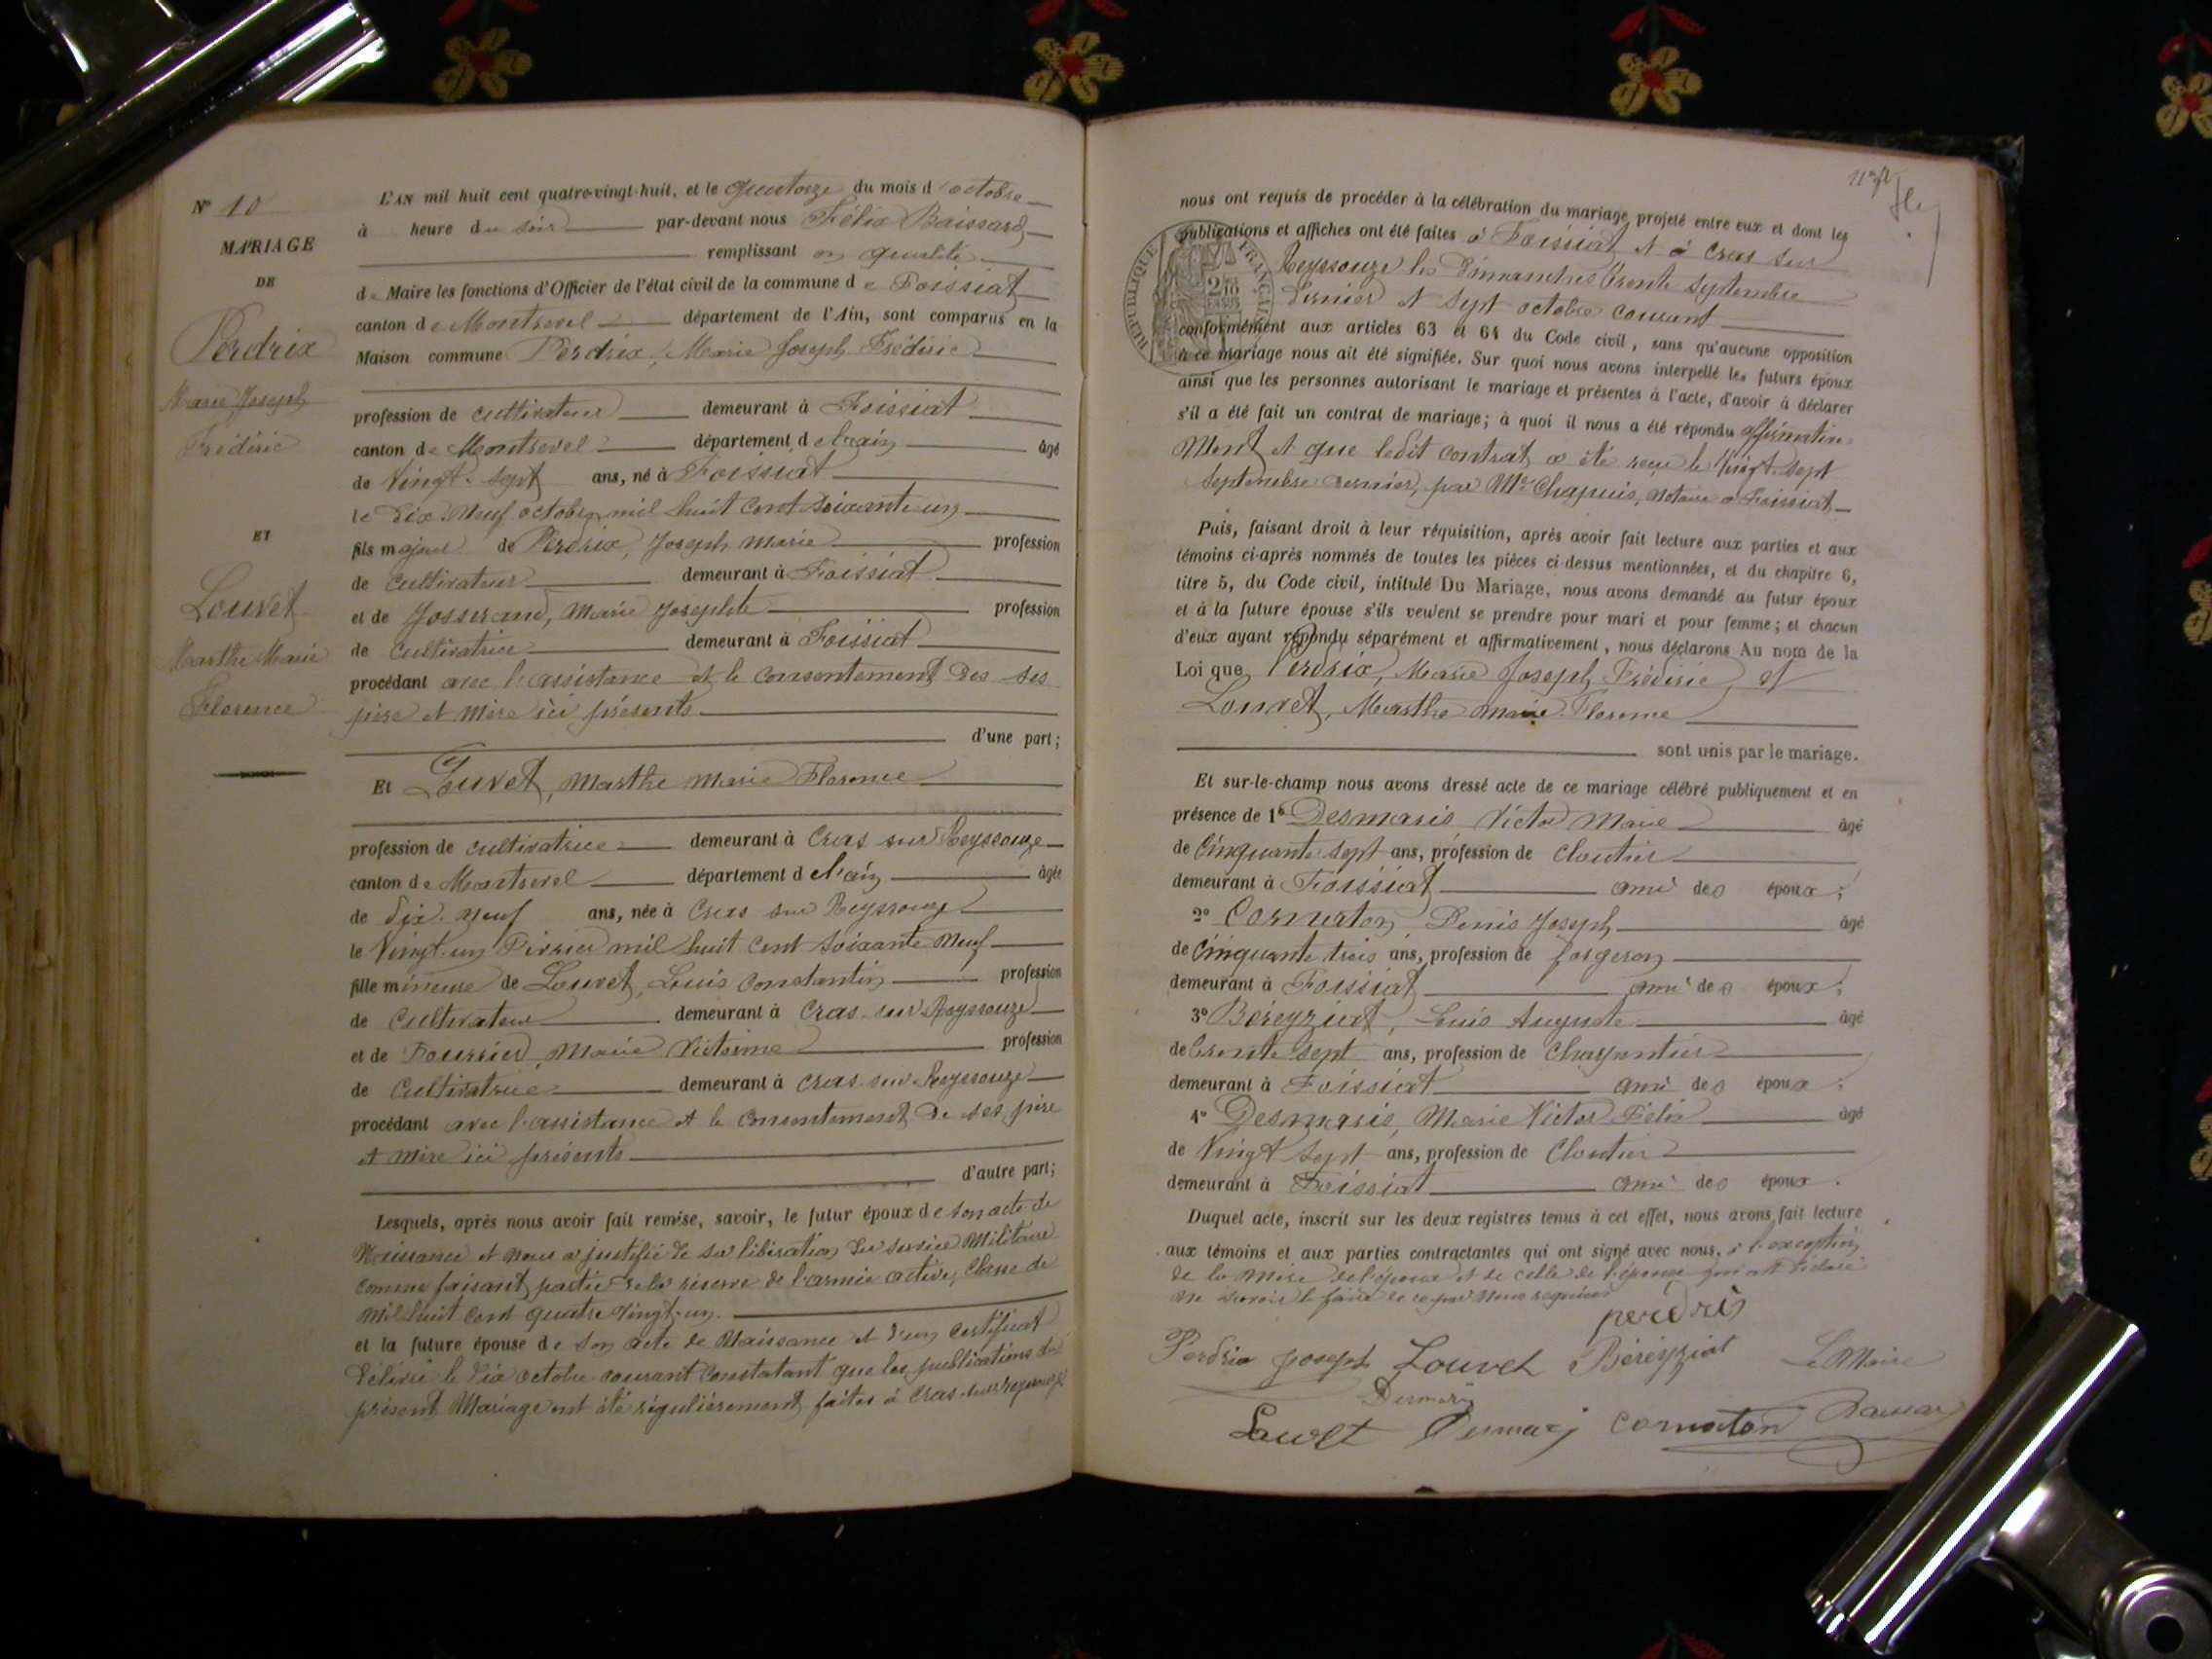 N° 10
MARIAGE
DE
Perdrix
Marie Joseph
Frédéric
ET
Louvet
Marthe Marie
Florence
L'AN mil huit cent quatre-vingt-huit, et le quatorze du mois d'octobre
à heure du soir par-devant nous Félix Baissard
remplissant en qualité
de Maire les fonctions d'Officier de l'état civil de la commune de Foissiat
canton de Montrevel département de l'Ain, sont comparus en la
Maison commune Perdrix, Marie Joseph Frédéric
profession de cultivateur demeurant à Foissiat
canton de Montrevel département de l'ain âgé
de Vingt-sept ans, né à Foissiat
le Dix Neuf octobre mil huit cent soixante-un
fils majeur de Perdrix, Joseph Marie profession
de cultivateur demeurant à Foissiat
et de Josserand, Marie Josephte profession
de cultivatrice demeurant à Foissiat
procédant avec l'assistance et le consentement des ses
père et mère ici présents
d'une part;
Et Louvet, Marthe Marie Florence
profession de cultivatrice demeurant à Cras sur Reyssouze
canton de Montrevel département de l'ain âgée
de dix-neuf ans, née à Cras sur Reyssouze
le Vingt-un Février mil huit cent soixante Neuf
fille mineure de Louvet, Louis Constantin profession
de Cultivateur demeurant à Cras-sur Reyssouze
et de Fourrier Marie Victorine profession
de Cultivatrice demeurant à Cras-sur Reyssouze
procédant avec l'assistance et le consentement de ses père
et mère ici présents
d'autre part;
Lesquels, après nous avoir fait remise, savoir, le futur époux de son acte de
Naissance et nous a justifié de sa libération du service Militaire
comme faisant partie de la réserve de l'armée active, Classe de
mil huit cent quatre vingt-un.
et la future épouse de son acte de Naissance et d'un certificat
délivré le dix octobre courant constatant que les publications du
présent Mariage ont été régulièrement faites à Cras-sur reyssouze
nous ont requis de procéder à la célébration du mariage projeté entre eux et dont les
publications et affiches ont été faites à Foissiat et à Cras sur
RÉPUBLIQUE FRANÇAISE
Reyssouze les Dimanches trente septembre
dernier et sept octobre courant
conformément aux articles 63 et 64 du Code civil, sans qu'aucune opposition
à ce mariage nous ait été signifiée. Sur quoi nous avons interpellé les futurs époux
ainsi que les personnes autorisant le mariage et présentes à l'acte, d'avoir à déclarer
s'il a été fait un contrat de mariage; à quoi il nous a été répondu affirmative-
Ment et que ledit contrat a été reçu le Vingt-sept
septembre dernier, par Me Chapuis, notaire à Foissiat
Puis, faisant droit à leur réquisition, après avoir fait lecture aux parties et aux
témoins ci-après nommés de toutes les pièces ci-dessus mentionnées, et du chapitre 6,
titre 5, du Code civil, intitulé Du Mariage, nous avons demandé au futur époux
et à la future épouse s'ils veulent se prendre pour mari et pour femme; et chacun
d'eux ayant répondu séparément et affirmativement, nous déclarons Au nom de la
Loi que Perdrix, Marie Joseph Frédéric, et
Louvet, Marthe Marie Florence
sont unis par le mariage.
Et sur-le-champ nous avons dressé acte de ce mariage célébré publiquement et en
présence de 1° Desmaris Victor Marie âgé
de Cinquante sept ans, profession de Cloutier
demeurant à Foissiat ami des époux;
2° Cornaton Denis Joseph âgé
de Cinquante trois ans, profession de forgeron
demeurant à Foissiat ami des époux;
3° Béreyziat, Louis Auguste âgé
de trente sept ans, profession de Charpentier
demeurant à Foissiat ami des époux;
4° Desmaris, Marie Victor Félix âgé
de Vingt sept ans, profession de Cloutier
demeurant à Foissiat ami des époux.
Duquel acte, inscrit sur les deux registres tenus à cet effet, nous avons fait lecture
aux témoins et aux parties contractantes qui ont signé avec nous, à l'exception
de la Mère de l'époux et de celle de l'épouse qui ont déclaré
ne savoir le faire de ce par nous requises
perdrix
Perdrix joseph Louvet Béréyziat Le Maire
Desmaris
Louvet Desmaris cornaton